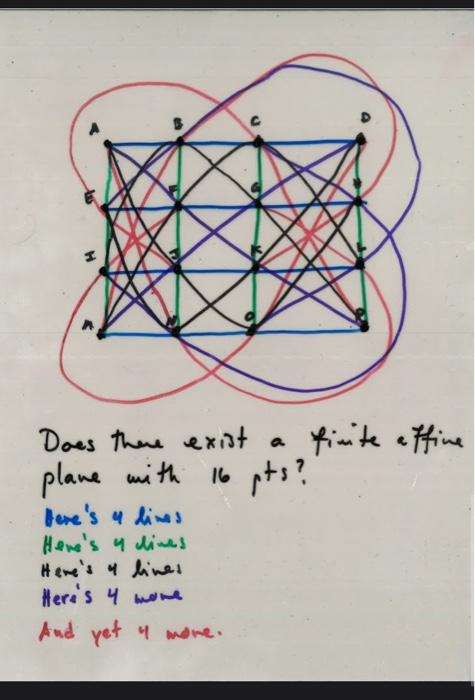 A B C D
E F G H
I J K L
M N O P
Does there exist a finite affine
plane with 16 pts?
Here's 4 lines
Here's 4 lines
Here's 4 lines
Here's 4 more
And yet 4 more.